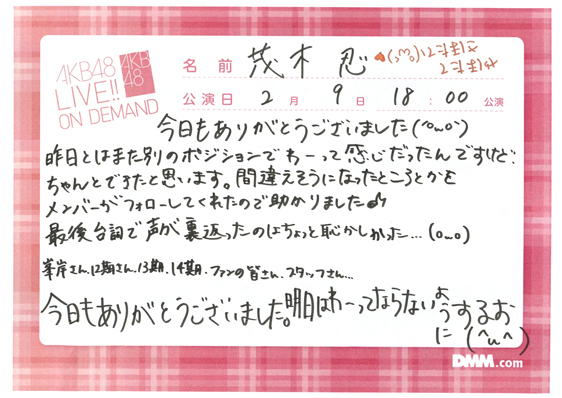 AKB48
LIVE!!
ON DEMAND
AKB
48
名前 茂木忍
公演日 2月9日 18:00 公演
今日もありがとうございました(^o_o^)
昨日とはまた別のポジションでわーって感じだったんですけど、
ちゃんとできたと思います。間違えそうになったところとかを
メンバーがフォローしてくれたので助かりました♪
最後台詞で声が裏返ったのはちょっと恥かしかった…(o_o)
峯岸さん、12期さん、13期、14期、ファンの皆さん、スタッフさん…
今日もありがとうございました。明日はわーってならないようにするお
(^u^)
DMM.com